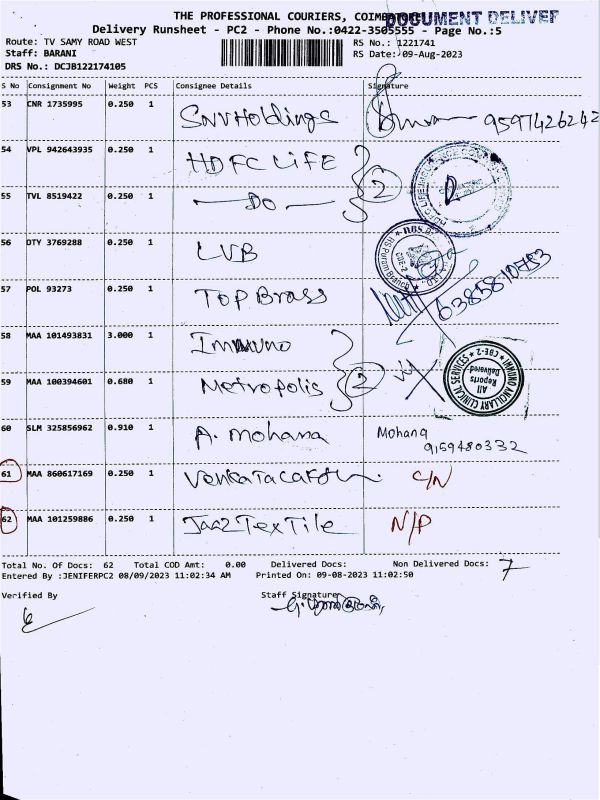 THE PROFESSIONAL COURIERS, COIMBATORE
DOCUMENT DELIVER
Delivery Runsheet - PC2 - Phone No.:0422-3505555 - Page No.:5
Route: TV SAMY ROAD WEST
RS No.: 1221741
Staff: BARANI
RS Date: 09-Aug-2023
DRS No.: DCJB122174105
S No Consignment No Weight PCS Consignee Details Signature
53 CNR 1735995 0.250 1 SNVHoldings 9597426242
54 VPL 942643935 0.250 1 HDFC LIFE 2
55 TVL 8519422 0.250 1 — DO —
56 OTY 3769288 0.250 1 LVB
CBE-2
57 POL 93273 0.250 1 TOP Brass 6385810753
58 MAA 101493831 3.000 1 Immuno
59 MAA 100394601 0.680 1 Metropolis 2
IMMUNO ANCILLARY CLINICAL SERVICES * CBE-2 *
All Reports Delivered
60 SLM 325856962 0.910 1 A. mohana Mohana
9159480332
61 MAA 860617169 0.250 1 C/N
62 MAA 101259886 0.250 1 Jaa2TexTile N/P
Total No. Of Docs: 62 Total COD Amt: 0.00 Delivered Docs: Non Delivered Docs: 7
Entered By :JENIFERPC2 08/09/2023 11:02:34 AM Printed On: 09-08-2023 11:02:50
Verified By Staff Signature